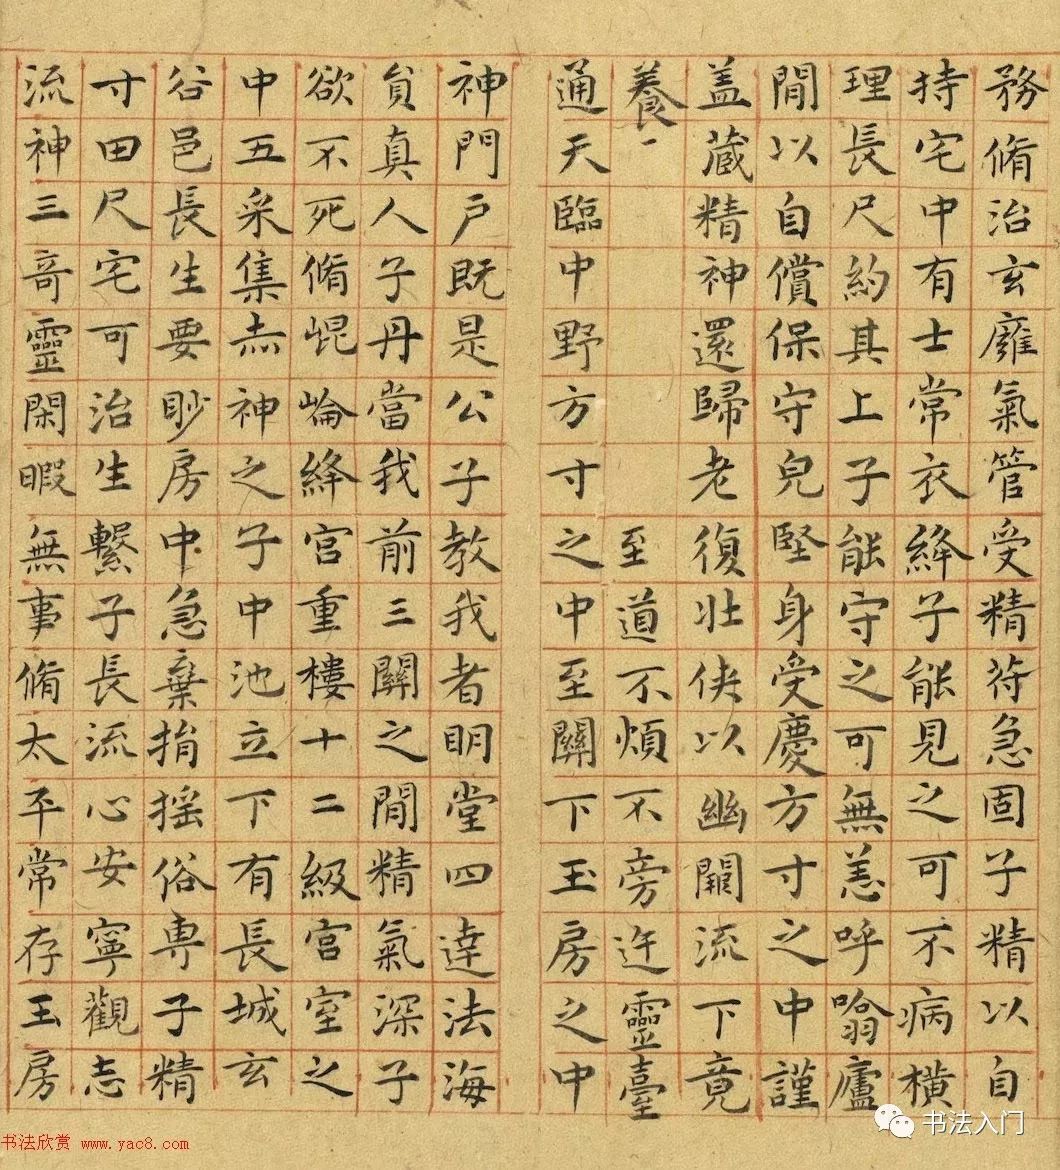 務脩治玄廱氣管受精苻急固子精以自
持宅中有士常衣絳子能見之可不病橫
理長尺約其上子能守之可無恙呼噏廬
閒以自償保守皃堅身受慶方寸之中謹
盖藏精神還歸老復壯俠以幽闕流下竟
養一至道不煩不旁迕靈臺
通天臨中野方寸之中至關下玉房之中
神門戶既是公子教我者明堂四達法海
貟真人子丹當我前三關之閒精氣深子
欲不死脩崐崘絳宮重樓十二級宮室之
中五采集赤神之子中池立下有長城玄
谷邑長生要眇房中急棄捐摇俗専子精
寸田尺宅可治生繫子長流心安寧觀志
流神三奇靈閑暇無事脩太平常存玉房
书法欣赏 www.yac8.com
书法入门